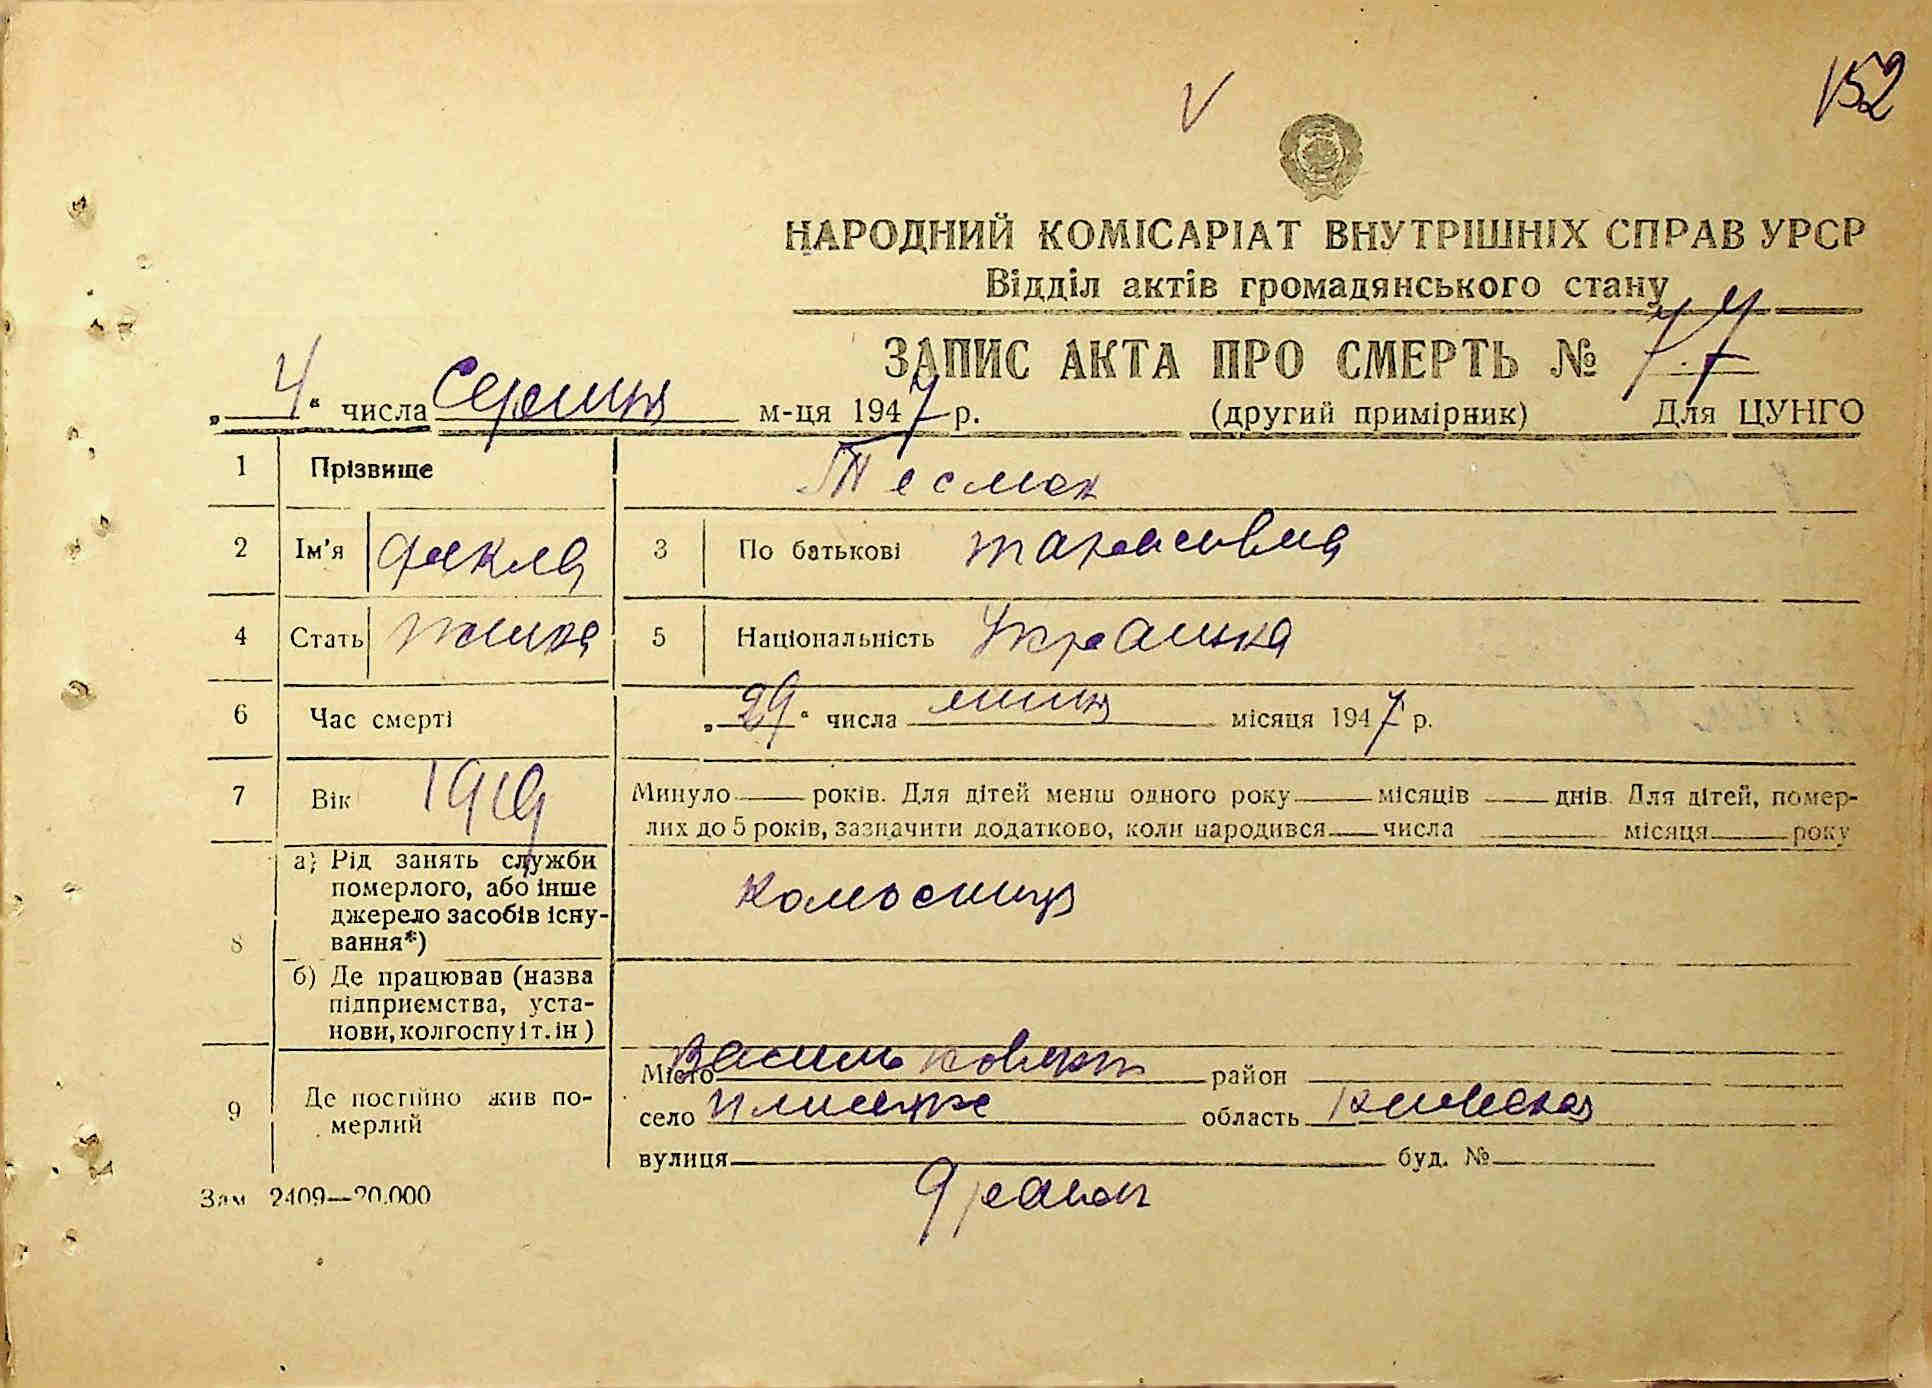 152
НАРОДНИЙ КОМІСАРІАТ ВНУТРІШНІХ СПРАВ УРСР
Відділ актів громадянського стану
ЗАПИС АКТА ПРО СМЕРТЬ №
„ 4 “ числа Серпня м-ця 1947 р. (другий примірник) Для ЦУНГО
1 Прізвище
2 Ім'я Фекла 3 По батькові Тарасовна
4 Стать 5 Національність Украинка
6 Час смерті „ 29 “ числа липня місяця 1947 р.
7 Вік 1919 Минуло років. Для дітей менш одного року місяців днів. Для дітей, помер-
лих до 5 років, зазначити додатково, коли народився числа місяця року
8 а) Рід занять служби
померлого, або інше
джерело засобів існу-
вання*)
б) Де працював (назва
підприємства, уста-
нови, колгоспу і т. ін)
9 Де постійно жив по-
мерлий
Місто район
село область Киевская
вулиця буд. №
Зам 2409—20.000